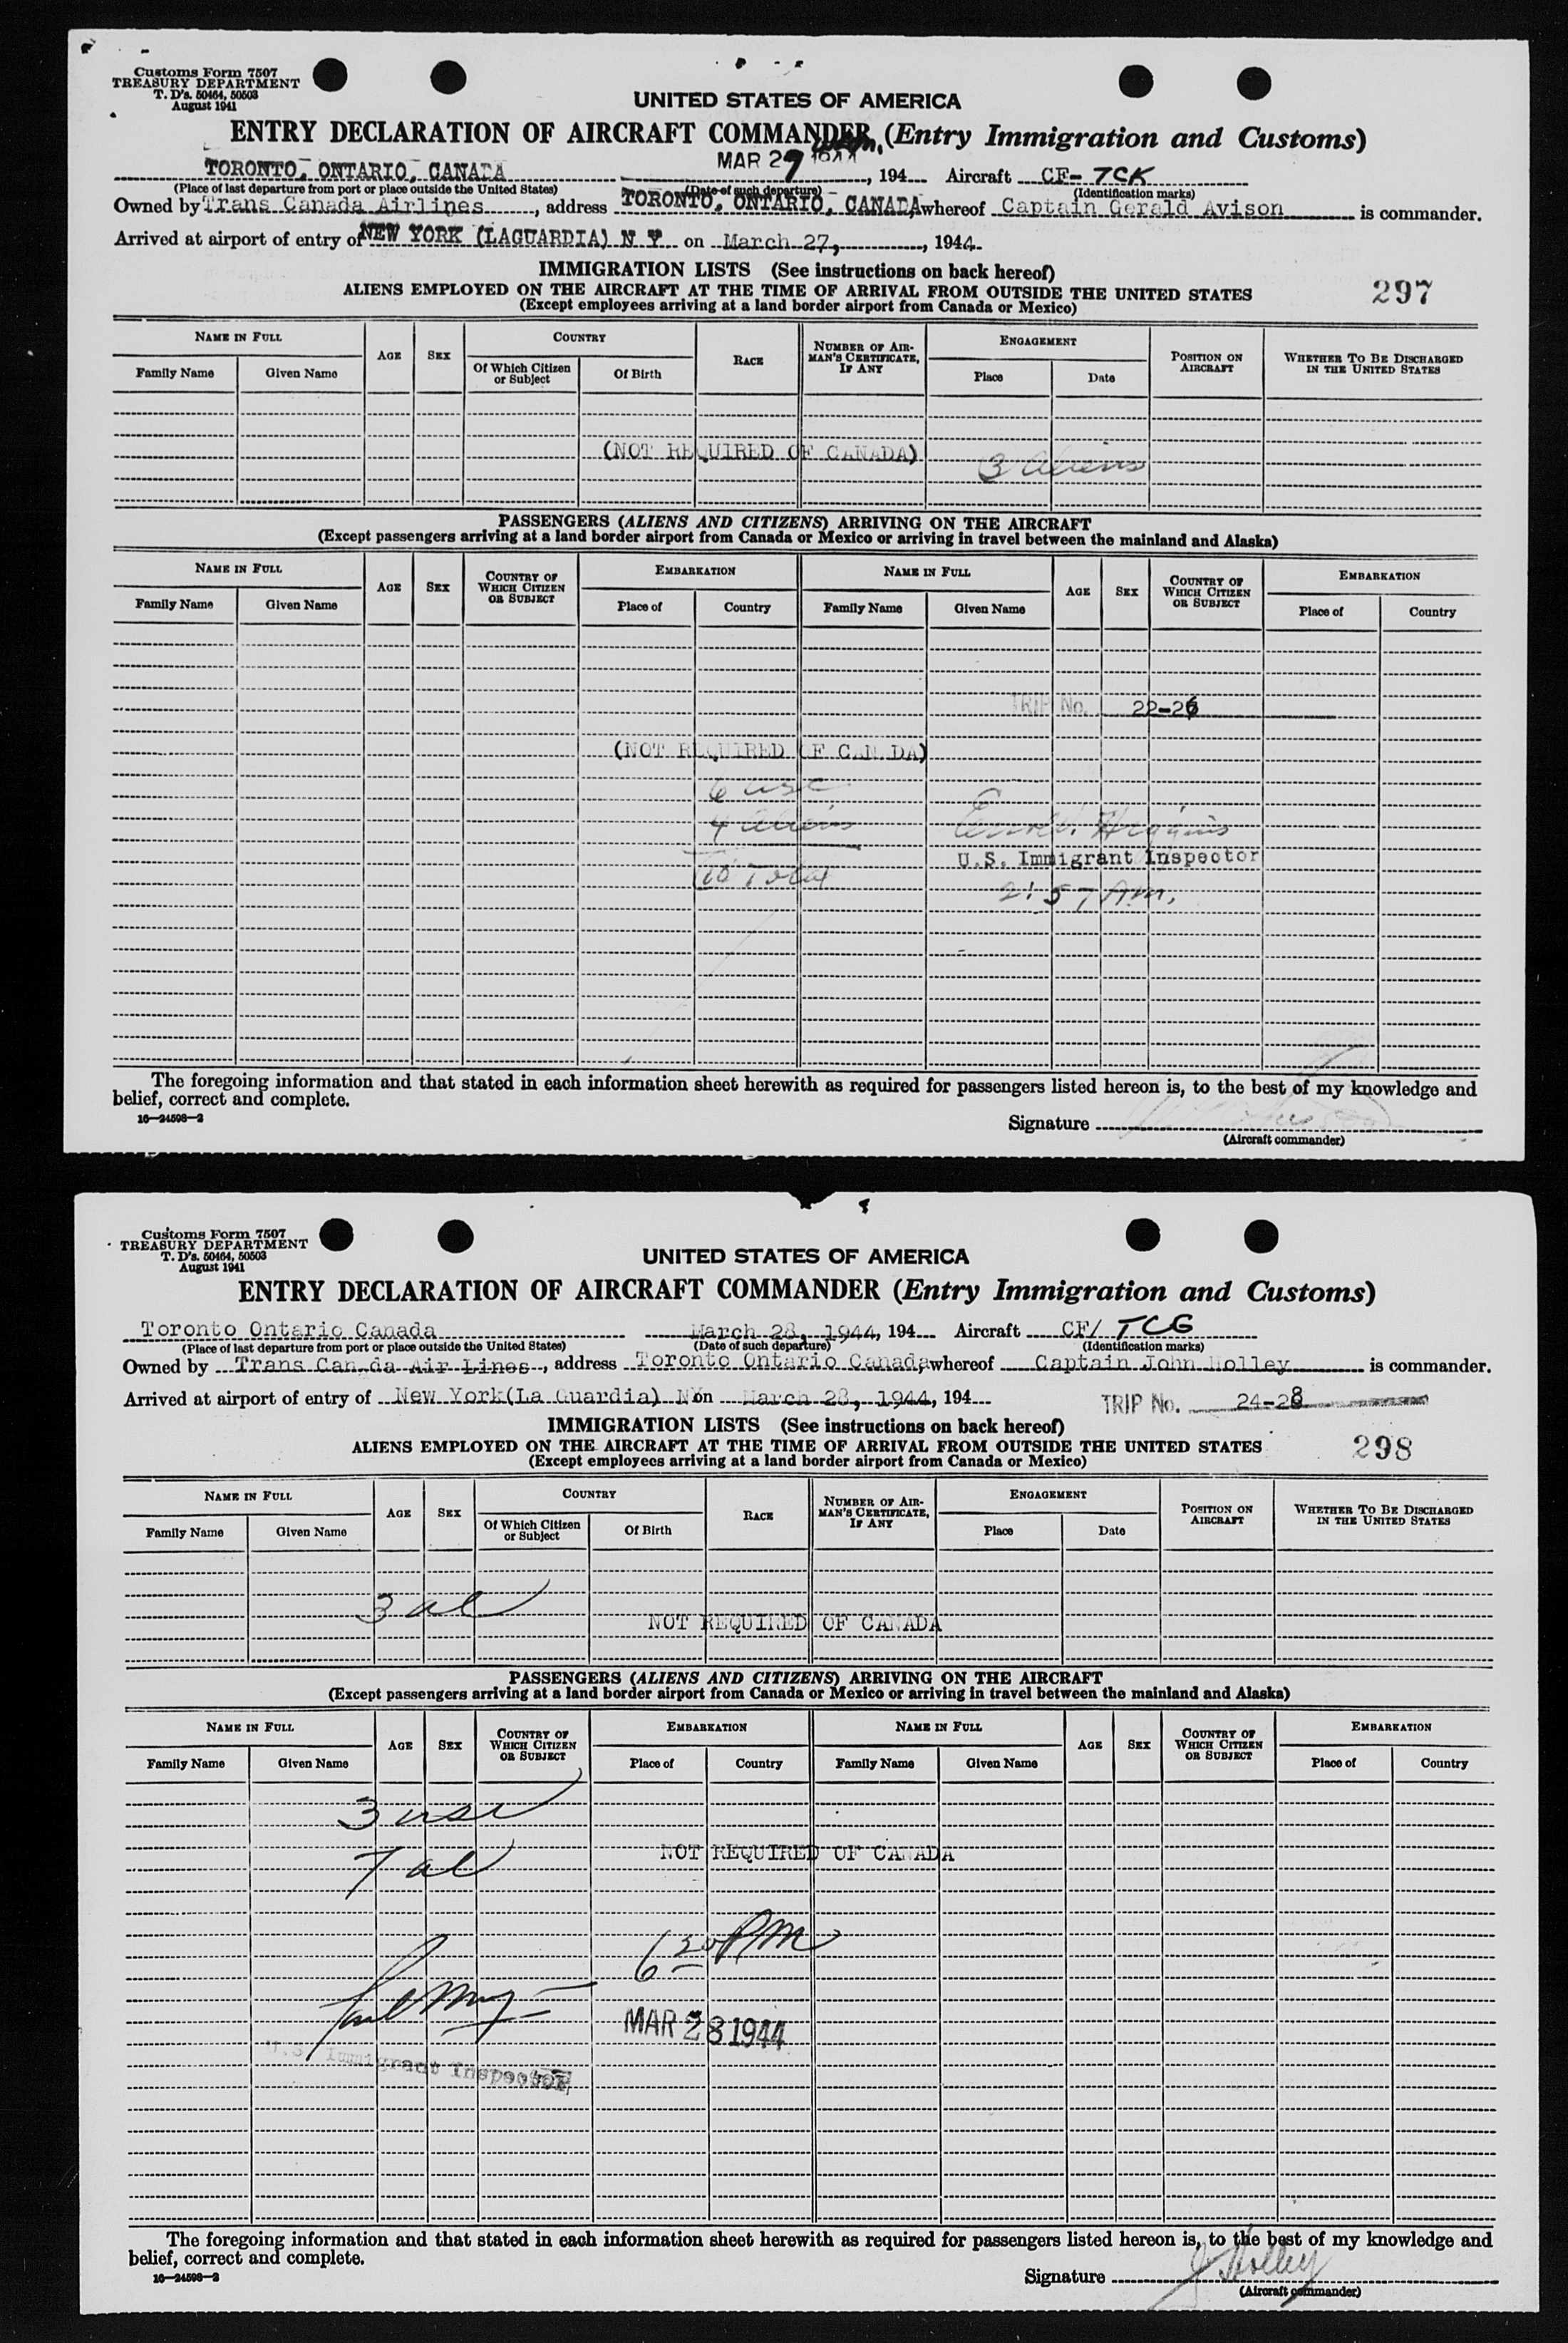 Customs Form 7507
TREASURY DEPARTMENT
T. D's. 50464, 50503
August 1941
UNITED STATES OF AMERICA
ENTRY DECLARATION OF AIRCRAFT COMMANDER (Entry Immigration and Customs)
TORONTO, ONTARIO, CANADA MAR 27 1944, 194 Aircraft CF-TCK
(Place of last departure from port or place outside the United States) (Date of such departure) (Identification marks)
Owned by Trans Canada Airlines, address TORONTO, ONTARIO, CANADA whereof Captain Gerald Avison is commander.
Arrived at airport of entry of NEW YORK (LAGUARDIA) N Y on March 27, 1944
IMMIGRATION LISTS (See instructions on back hereof)
ALIENS EMPLOYED ON THE AIRCRAFT AT THE TIME OF ARRIVAL FROM OUTSIDE THE UNITED STATES
(Except employees arriving at a land border airport from Canada or Mexico)
297
NAME IN FULL AGE SEX COUNTRY RACE NUMBER OF AIRMAN'S CERTIFICATE, IF ANY ENGAGEMENT POSITION ON AIRCRAFT WHETHER TO BE DISCHARGED IN THE UNITED STATES
Family Name Given Name Of Which Citizen or Subject Of Birth Place Date
(NOT REQUIRED OF CANADA) 3 aliens
PASSENGERS (ALIENS AND CITIZENS) ARRIVING ON THE AIRCRAFT
(Except passengers arriving at a land border airport from Canada or Mexico or arriving in travel between the mainland and Alaska)
NAME IN FULL AGE SEX COUNTRY OF WHICH CITIZEN OR SUBJECT EMBARKATION NAME IN FULL AGE SEX COUNTRY OF WHICH CITIZEN OR SUBJECT EMBARKATION
Family Name Given Name Place of Country Family Name Given Name Place of Country
TRIP No. 22-26
(NOT REQUIRED OF CANADA)
6 usc
4 aliens
10 Total
Higgins
U.S. Immigrant Inspector
2:57 A.M.
The foregoing information and that stated in each information sheet herewith as required for passengers listed hereon is, to the best of my knowledge and
belief, correct and complete.
16—24598-2
Signature
(Aircraft commander)
Customs Form 7507
TREASURY DEPARTMENT
T. D's. 50464, 50503
August 1941
UNITED STATES OF AMERICA
ENTRY DECLARATION OF AIRCRAFT COMMANDER (Entry Immigration and Customs)
Toronto Ontario Canada March 28, 1944, 194 Aircraft CF/ TCG
(Place of last departure from port or place outside the United States) (Date of such departure) (Identification marks)
Owned by Trans Canada Air Lines, address Toronto Ontario Canada, whereof Captain John Holley is commander.
Arrived at airport of entry of New York(La Guardia) NY on March 28, 1944, 194
TRIP No. 24-28
IMMIGRATION LISTS (See instructions on back hereof)
ALIENS EMPLOYED ON THE AIRCRAFT AT THE TIME OF ARRIVAL FROM OUTSIDE THE UNITED STATES
(Except employees arriving at a land border airport from Canada or Mexico)
298
NAME IN FULL AGE SEX COUNTRY RACE NUMBER OF AIRMAN'S CERTIFICATE, IF ANY ENGAGEMENT POSITION ON AIRCRAFT WHETHER TO BE DISCHARGED IN THE UNITED STATES
Family Name Given Name Of Which Citizen or Subject Of Birth Place Date
3 al
NOT REQUIRED OF CANADA
PASSENGERS (ALIENS AND CITIZENS) ARRIVING ON THE AIRCRAFT
(Except passengers arriving at a land border airport from Canada or Mexico or arriving in travel between the mainland and Alaska)
NAME IN FULL AGE SEX COUNTRY OF WHICH CITIZEN OR SUBJECT EMBARKATION NAME IN FULL AGE SEX COUNTRY OF WHICH CITIZEN OR SUBJECT EMBARKATION
Family Name Given Name Place of Country Family Name Given Name Place of Country
3 usc
7 al
NOT REQUIRED OF CANADA
6 20 PM
MAR 28 1944
U.S. Immigrant Inspector
The foregoing information and that stated in each information sheet herewith as required for passengers listed hereon is, to the best of my knowledge and
belief, correct and complete.
16—24598-2
Signature J Holley
(Aircraft commander)